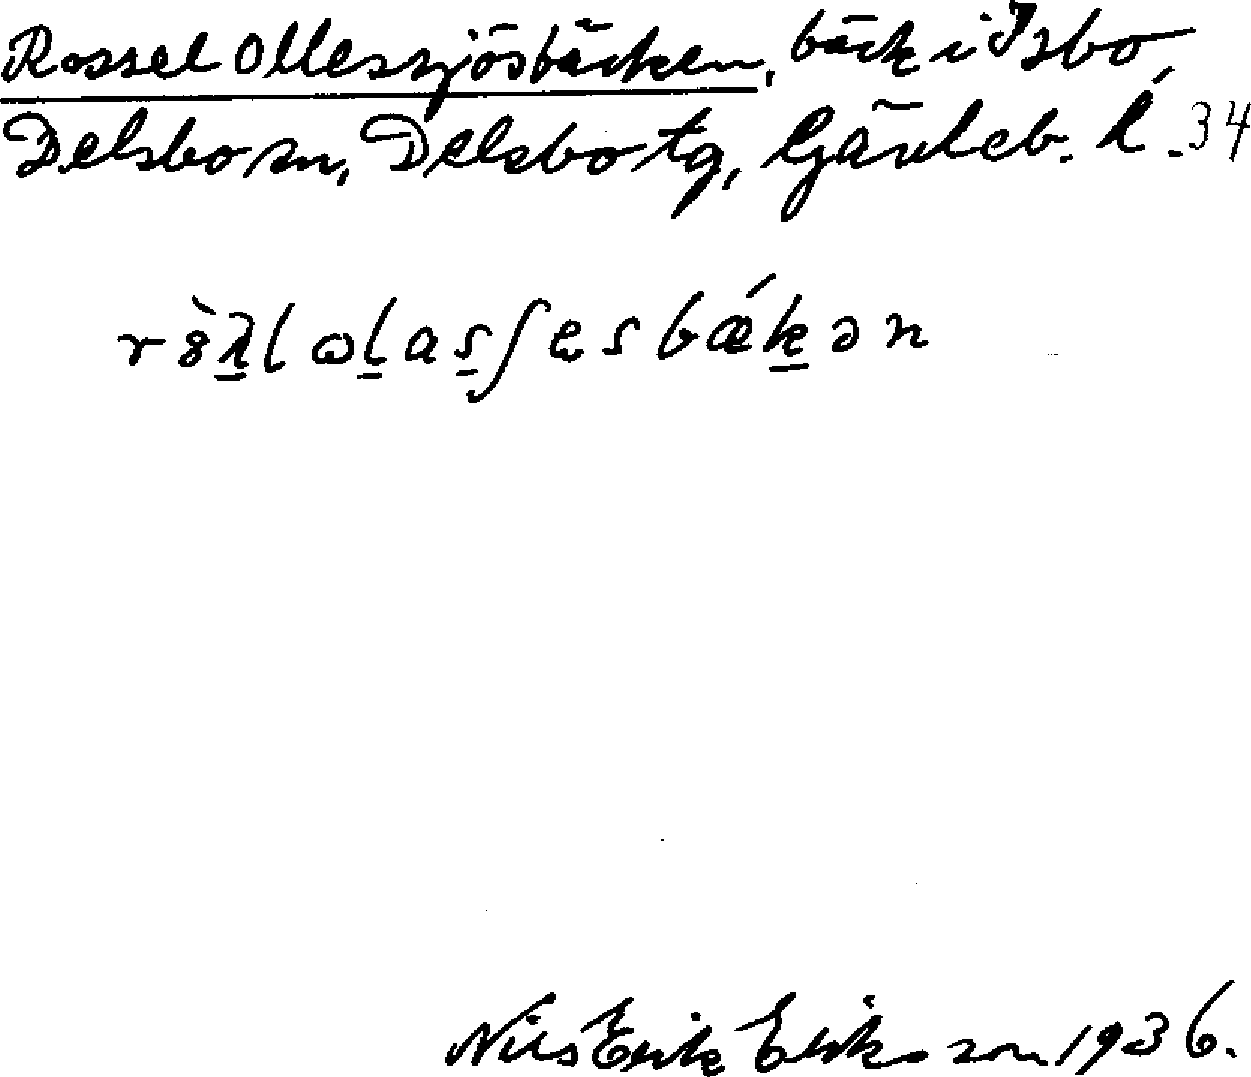 Rossel Ollessjösbäcken, bäck i Isbo,
Delsbo sn, Delsbo tg, Gävleb. l. 34
Nils Erik Eriksson 1936.